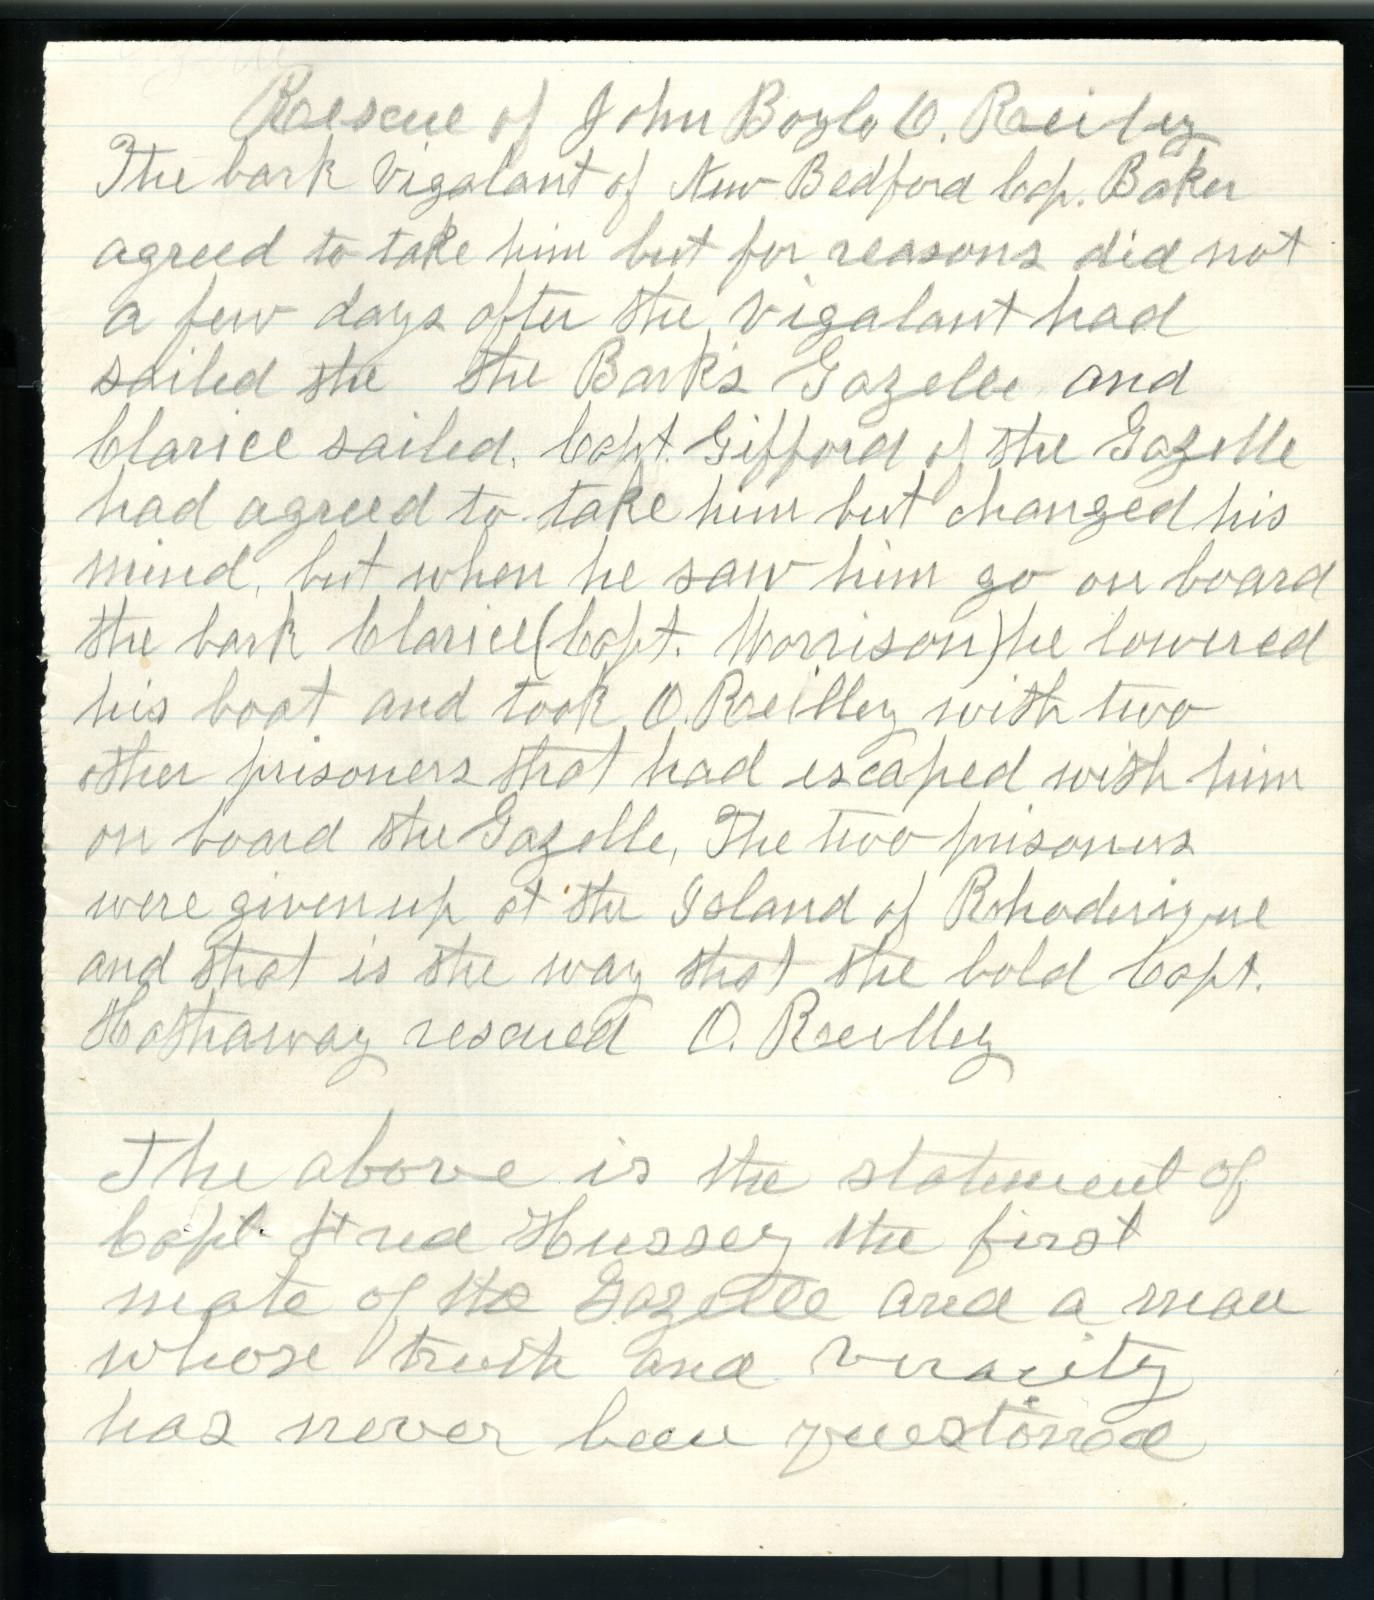 Rescue of John Boyle O. Reiley
The bark Vigalant of New Bedford Cap. Baker
agreed to take him but for reasons did not
a few days after the Vigalant had
sailed the the Barks Gazelle and
Clarice sailed. Capt. Gifford of the Gazelle
had agreed to take him but changed his
mind, but when he saw him go on board
the bark Clarice (Capt. Morrison) he lowered
his boat and took O. Reilley with two
other prisoners that had escaped with him
on board the Gazelle, The two prisoners
were given up at the Island of Rhoderigue
and that is the way that the bold Capt.
Hathaway rescued O. Reilley
The above is the statement of
Capt. Fred Hussey the first
mate of the Gazelle and a man
whose truth and veracity
has never been questioned